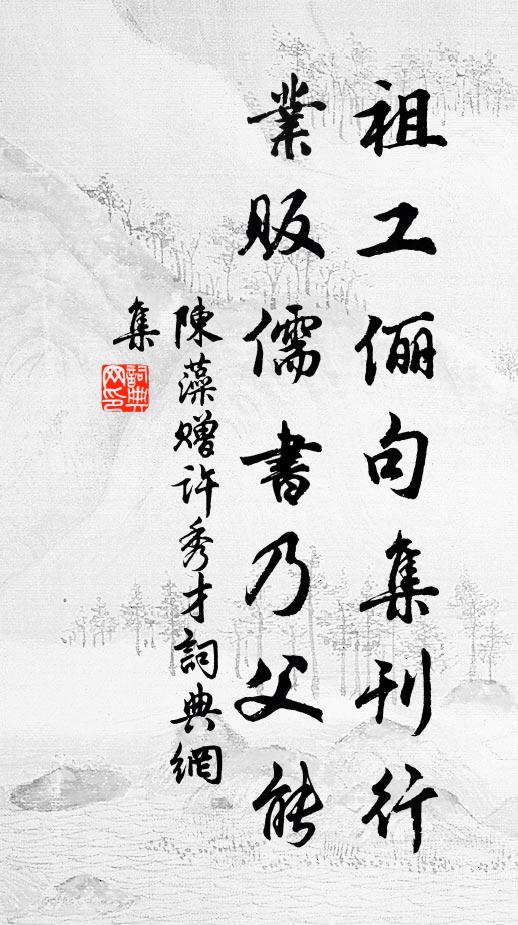 祖工俪句集刊行
業販儒書乃父能
陳藻贈许秀才詞典網
集
詞典網印